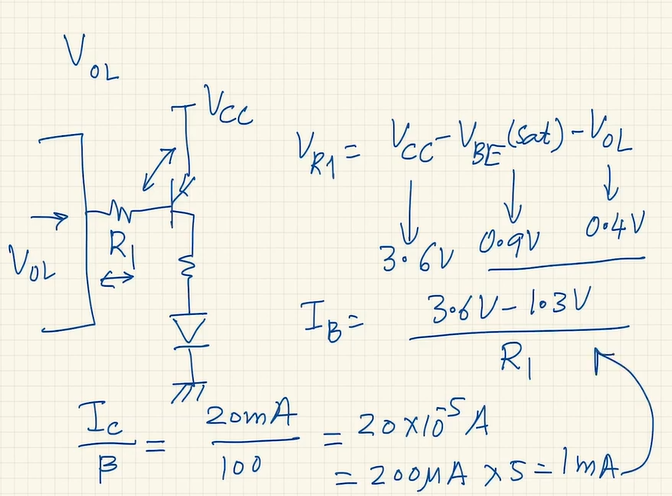 V_OL
V_CC
V_R1 = V_CC - V_BE(sat) - V_OL
3.6V 0.9V 0.4V
V_OL
R1
I_B = (3.6V - 1.3V) / R1
I_C / β = 20mA / 100 = 20×10^-5 A
= 200μA × 5 = 1mA